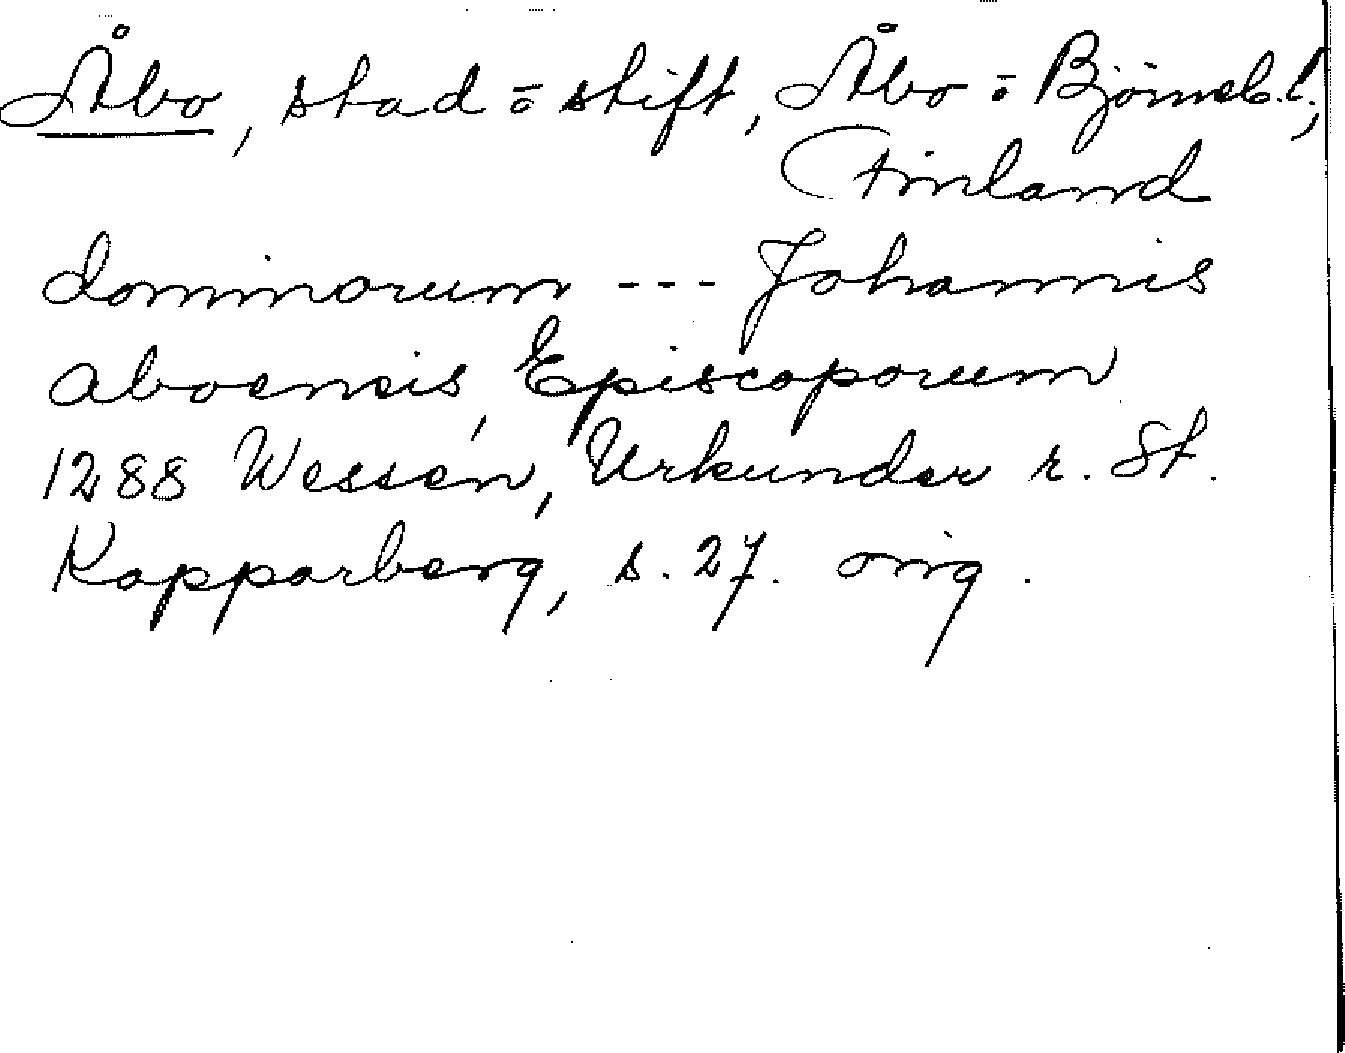 Åbo, stad o stift, Åbo o Björneb. l.,
Finland
dominorum --- Johannis
aboensis, Episcoporum
1288 Wessén, Urkunder r. St.
Kopparberg, s. 27. orig.